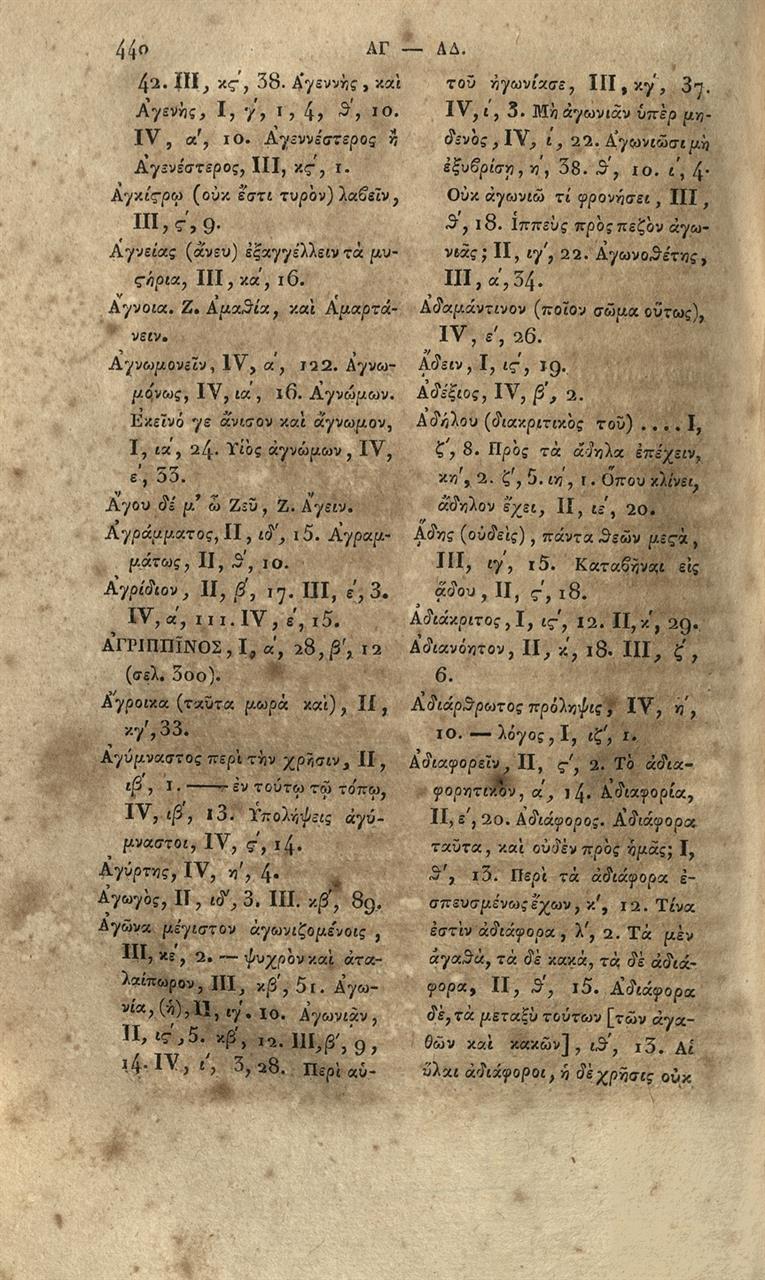 440 ΑΓ — ΑΔ.
42. III, κϛ', 38. Ἀγεννὴς, καὶ
Ἀγενὴς, I, γ', 1, 4, θ', 10.
IV, α', 10. Ἀγεννέστερος ἢ
Ἀγενέστερος, III, κϛ', 1.
Ἀγκίϛρῳ (οὐκ ἔστι τυρὸν) λαβεῖν,
III, ϛ', 9.
Ἁγνείας (ἄνευ) ἐξαγγέλλειν τὰ μυ-
ϛήρια, III, κα', 16.
Ἄγνοια. Ζ. Ἀμαθία, καὶ Ἁμαρτά-
νειν.
Ἀγνωμονεῖν, IV, α', 122. Ἀγνω-
μόνως, IV, ια', 16. Ἀγνώμων.
Ἐκεῖνό γε ἄνισον καὶ ἄγνωμον,
I, ια', 24. Υἱὸς ἀγνώμων, IV,
ε', 33.
Ἄγου δέ μ' ὦ Ζεῦ, Ζ. Ἄγειν.
Ἀγράμματος, II, ιδ', 15. Ἀγραμ-
μάτως, II, θ', 10.
Ἀγρίδιον, II, β', 17. III, ε', 3.
IV, α', 111. IV, ε', 15.
ἈΓΡΙΠΠΙ͂ΝΟΣ, I, α', 28, β', 12
(σελ. 300).
Ἄγροικα (ταῦτα μωρὰ καὶ), II,
κγ', 33.
Ἀγύμναστος περὶ τὴν χρῆσιν, II,
ιβ', 1. — ἐν τούτῳ τῷ τόπῳ,
IV, ιβ', 13. Ὑπολήψεις ἀγύ-
μναστοι, IV, ϛ', 14.
Ἀγύρτης, IV, η', 4.
Ἀγωγὸς, II, ιδ', 3. III. κβ', 89.
Ἀγῶνα μέγιστον ἀγωνιζομένοις,
III, κε', 2. — ψυχρὸν καὶ ἀτα-
λαίπωρον, III, κβ', 51. Ἀγω-
νία, (ἡ), II, ιγ'. 10. Ἀγωνιᾷν,
II, ιϛ', 5. κβ', 12. III, β', 9,
14. IV, ι', 3, 28. Περὶ αὑ-
τοῦ ἠγωνίασε, III, κγ', 37.
IV, ι', 3. Μὴ ἀγωνιᾶν ὑπὲρ μη-
δενὸς, IV, ι', 22. Ἀγωνιῶσι μὴ
ἐξυβρίσῃ, η', 38. θ', 10. ι', 4.
Οὐκ ἀγωνιῶ τί φρονήσει, III,
θ', 18. Ἱππεὺς πρὸς πεζὸν ἀγω-
νιᾷς; II, ιγ', 22. Ἀγωνοθέτης,
III, α', 34.
Ἀδαμάντινον (ποῖον σῶμα οὕτως),
IV, ε', 26.
ᾌδειν, I, ιϛ', 19.
Ἀδέξιος, IV, β', 2.
Ἀδήλου (διακριτικὸς τοῦ) .... I,
ζ', 8. Πρὸς τὰ ἄδηλα ἐπέχειν,
κη', 2. ζ', 5. ιη', 1. Ὅπου κλίνει,
ἄδηλον ἔχει, II, ιε', 20.
ᾍδης (οὐδεὶς), πάντα θεῶν μεϛὰ,
III, ιγ', 15. Καταβῆναι εἰς
ᾅδου, II, ϛ', 18.
Ἀδιάκριτος, I, ιϛ', 12. II, κ', 29.
Ἀδιανόητον, II, κ', 18. III, ζ',
6.
Ἀδιάρθρωτος πρόληψις, IV, η',
10. — λόγος, I, ιζ', 1.
Ἀδιαφορεῖν, II, ϛ', 2. Τὸ ἀδια-
φορητικὸν, α', 14. Ἀδιαφορία,
II, ε', 20. Ἀδιάφορος. Ἀδιάφορα
ταῦτα, καὶ οὐδὲν πρὸς ἡμᾶς; I,
θ', 13. Περὶ τὰ ἀδιάφορα ἐ-
σπευσμένως ἔχων, κ', 12. Τίνα
ἐστὶν ἀδιάφορα, λ', 2. Τὰ μὲν
ἀγαθὰ, τὰ δὲ κακὰ, τὰ δὲ ἀδιά-
φορα, II, θ', 15. Ἀδιάφορα
δὲ, τὰ μεταξὺ τούτων [τῶν ἀγα-
θῶν καὶ κακῶν], ιθ', 13. Αἱ
ὕλαι ἀδιάφοροι, ἡ δὲ χρῆσις οὐκ